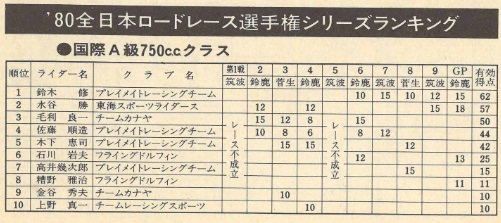 '80全日本ロードレース選手権シリーズランキング
●国際A級750ccクラス
順位 ライダー名 クラブ名 第1戦 2 3 4 5 6 7 8 9 GP 有効得点
筑波 鈴鹿 菅生 鈴鹿 筑波 鈴鹿 筑波 菅生 筑波 鈴鹿
1 鈴木 修 プレイメイトレーシングチーム 10 15 10 12 15 62
2 水谷 勝 東海スポーツライダース 12 12 15 18 57
3 毛利 良一 チームカナヤ 15 12 8 15 50
4 佐藤 順造 プレイメイトレーシングチーム 10 8 6 8 12 44
5 木下 恵司 プレイメイトレーシングチーム 15 15 12 42
6 石川 岩夫 フライングドルフィン 12 13 25
7 高井幾次郎 プレイメイトレーシングチーム 15 15
8 精野 雅治 フライングドルフィン 11 11
9 金谷 秀夫 チームカナヤ 10 10
10 上野 真一 チームレーシングスポーツ 4 10
レース不成立
レース不成立